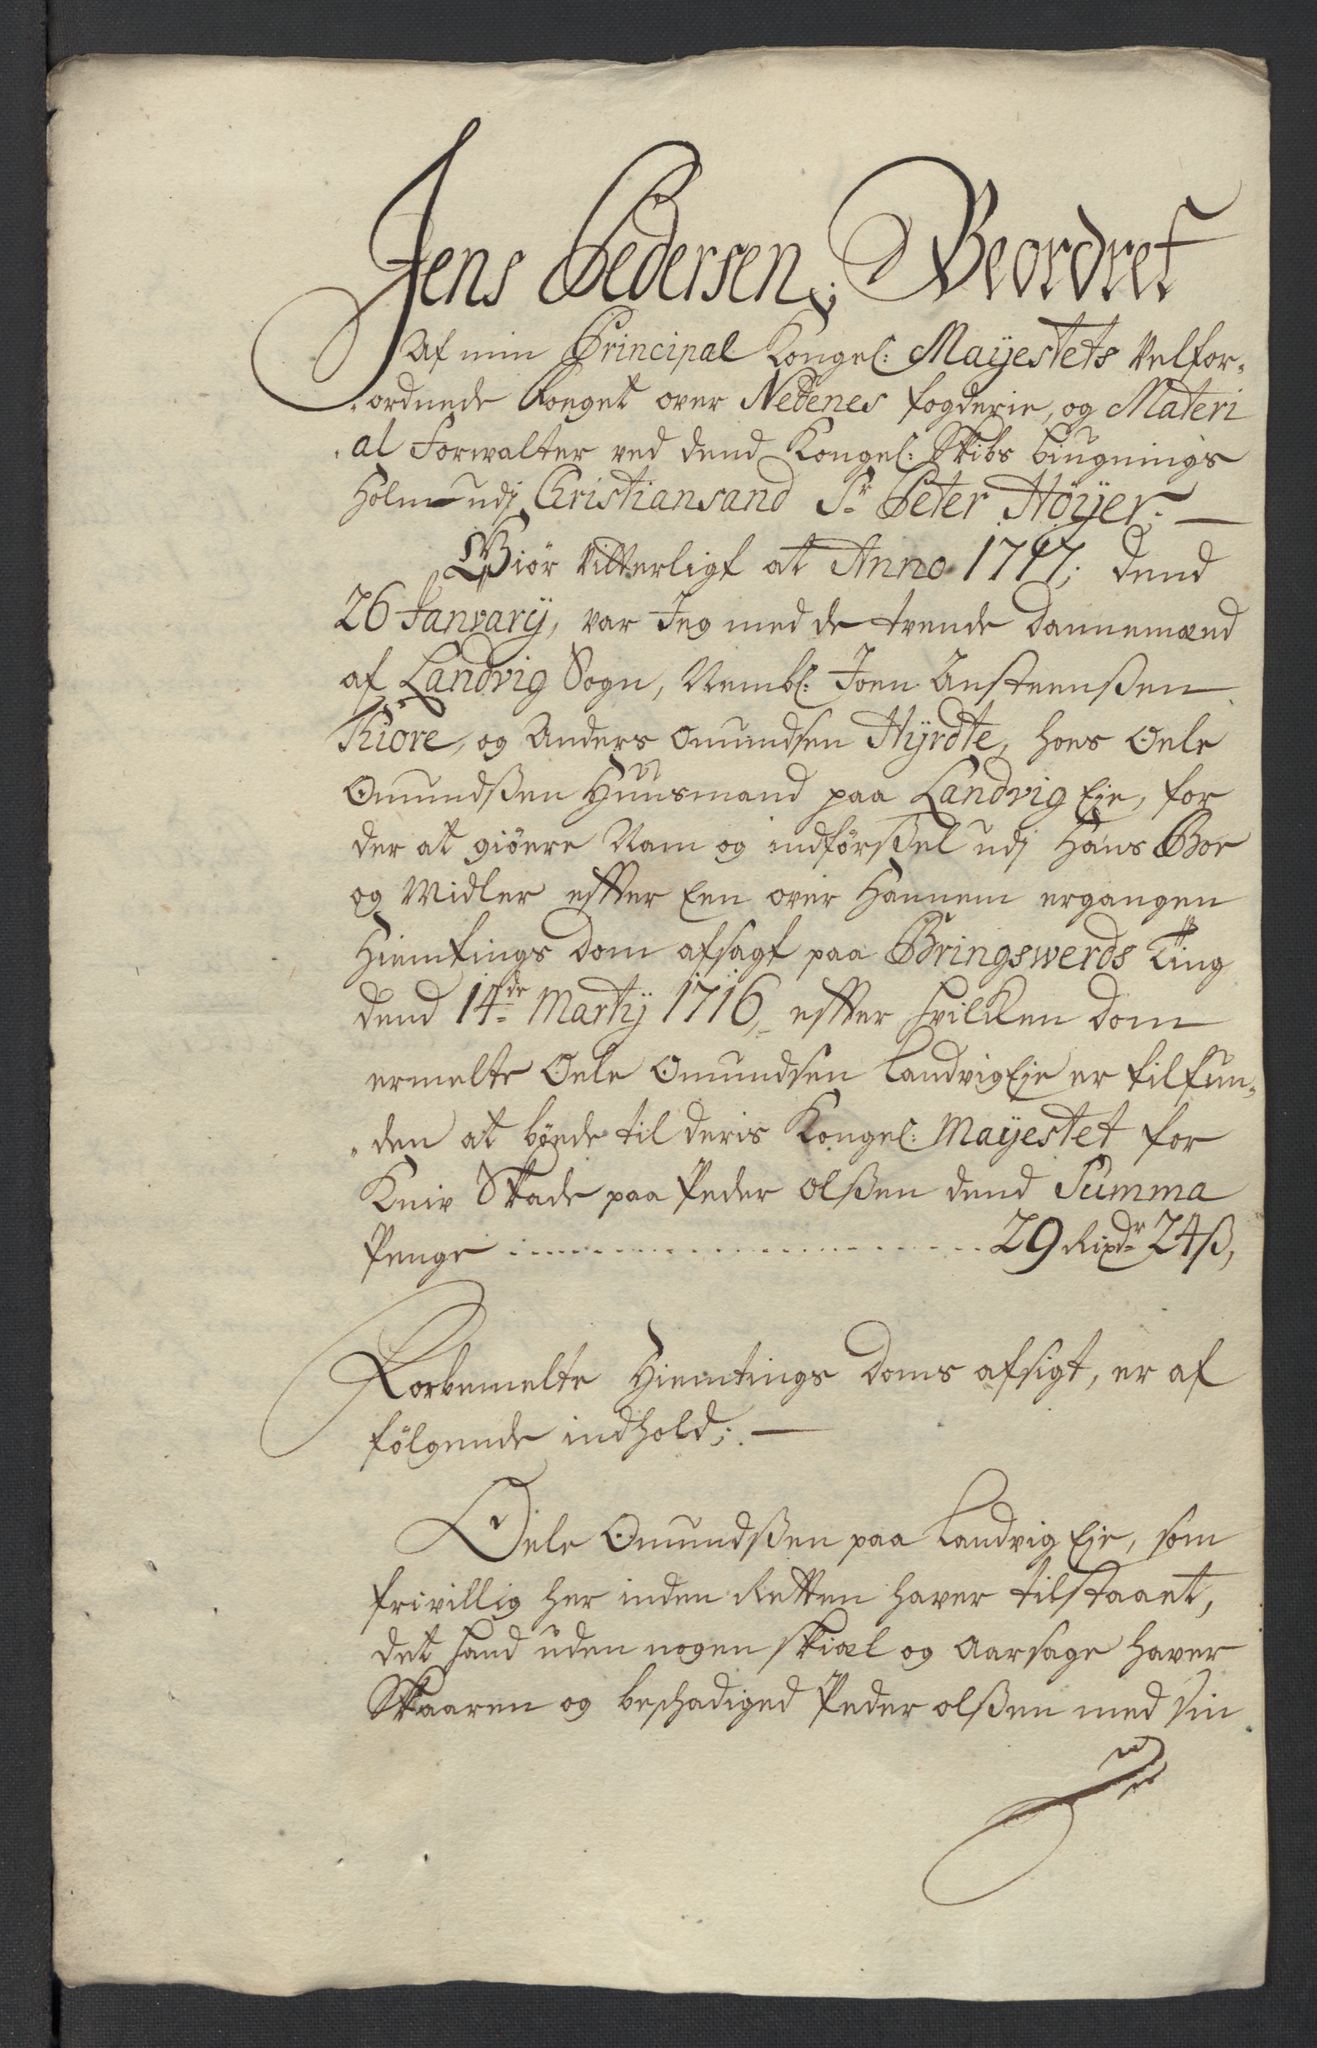 Jens Pedersen, Beordret
Af min Principal Kongel: Mayestets velfor-
ordnede Foeget over Nedenes fogderie, og Materi
al Forwalter ved dend Kongel: Skibs biugnings
Holm udj Christiansand Sr. Peter Höyer. —
Giör vitterligt at Anno 1717, dend
26 January, var Jeg med de tvende Dannemænd
af Landvig Sogn, Nembl: Joen Ansteenßen
Kiore, og Anders Omundsen Hyrdte, hoes Oele
Omundßen Huusmand paa Landvig Eje, for
der at giöere Nam og indförßel udj Hans Boe
og Midler efter Een over Hannem ergangen
Hiemtings Dom afsagt paa Bringswerds Ting
dend 14de Martij 1716, efter hvilken Dom
ermelte Oele Omundsen Landvig Eje er tilfun-
den at böede til deris Kongel: Mayestet for
Kniv Skade paa Peder Olßen dend Summa
Penge ..................... 29 Rixdr 24 ß,
Forbemelte Hiemtings Doms afsigt, er af
fölgende indhold; —
Oele Omundßen paa Landvig Eje, som
frivillig her inden Retten haver tilstaaet,
det hand uden nogen skiæl og Aarsage haver
Skaaren og beschadiged Peder Olßen med sin